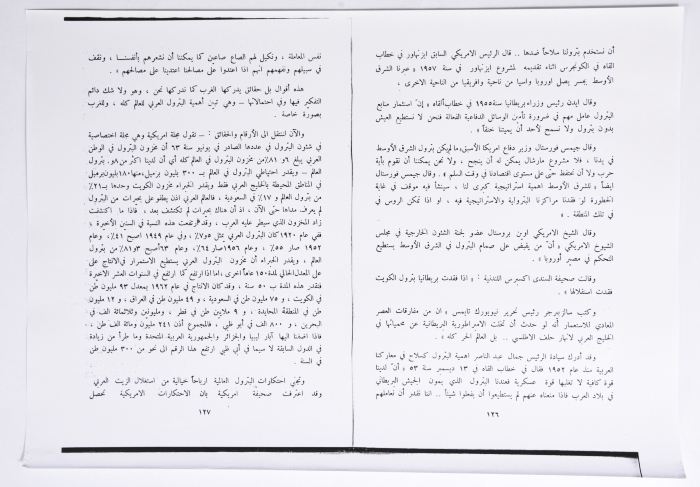 أن نستخدم بترولنا سلاحاً ضدها .. قال الرئيس الامريكي السابق ايزنهاور في خطاب
القاه في الكونجرس اثناء تقديمه لمشروع ايزنهاور في سنة ١٩٥٧ « عبرنا الشرق
الأوسط يمر بصلى اوروبا واسيا من ناحية وافريقيا من الناحية الاخرى .
وقال ايدن رئيس وزراء بريطانيا سنة ١٩٥٥ في خطاب ألقاه « إن استثمار منابع
البترول عامل مهم في ضرورة تأمين الوسائل الدفاعية الفعالة فنحن لا نستطيع العيش
بدون بترول ولا نسمح لأحد أن يميتنا خنقاً » .
وقال جيمس فورستال وزير دفاع امريكا الأسبق ما لم يكن بترول الشرق الأوسط
في يدنا ، فلا مشروع مارشال يمكن له أن ينجح ، ولا نحن يمكننا أن نقوم بأية
حرب ولا أن نحتفظ حتى على مستوى اقتصادنا في وقت السلم » . وقال جيمس فورستال
ايضاً « للشرق الأوسط اهمية استراتيجية كبرى لنا ، سينشأ فيه موقف في غاية
الخطورة لو فقدنا مراكزنا البترولية والاستراتيجية فيه ، او اذا تمكن الروس في
تلك المنطقة . »
وقال الشيخ الامريكي اوين بروستال عضو لجنة الشئون الخارجية في مجلس
الشيوخ الامريكي « وأن من يقبض على صمام البترول في الشرق الاوسط يستطيع
التحكم في مصير أوروبا » .
وقالت صحيفة السندى اكسبرس اللندنية : « اذا فقدت بريطانيا بترول الكويت
فقدت استقلالها » .
وكتب سالزبرجر رئيس تحرير نيويورك تايمس « ان من مفارقات العصر
المعادي للاستعمار أنه لو حدث أن تخلت الامبراطورية البريطانية عن محمياتها في
الخليج العربي لانهار حلف الاطلسي .. بل العالم الحر كله » .
وقد أدرك سيادة الرئيس جمال عبد الناصر اهمية البترول كسلاح في معاركنا
العربية منذ عام ١٩٥٢ فقال في خطاب القاه في ١٣ ديسمبر سنة ٥٣ « أن لدينا
قوة كافية لا تغلبها قوة عسكرية فعندنا البترول الذي يمون الجيش البريطاني
في بلاد العرب فاذا منعناه عنهم لم يستطيعوا أن يفعلوا شيئاً .. اننا نقدر أن نعاملهم
١٢٦
نفس المعاملة ، ونكيل لهم الصاع صاعين كما يمكننا أن نشعرهم بأنفسنا ، ونقف
في سبيلهم ونفهمهم انهم اذا اعتدوا على مصالحنا اعتدينا على مصالحهم » .
هذه أقوال بل حقائق يدركها الغرب كما ندركها نحن ، وهو ولا شك دائم
التفكير فيها وفي احتمالاتها – وهي تبين أهمية البترول العربي للعالم كله ، وللغرب
بصورة خاصة .
والآن لننتقل الى الأرقام والحقائق : – تقول مجلة امريكية وهي مجلة اختصاصية
في شئون البترول في عددها الصادر في يونية سنة ٦٣ أن مخزون البترول في الوطن
العربي يبلغ ٨١٫٦٪ من مخزون البترول في العالم كله أي أن لدينا اكثر من ٨٠٪ بترول
العالم – ويقدر احتياطي البترول في العالم بـ ٣٠٠ بليون برميل، منها ١٨٠ بليون برميل
في المناطق المحيطة بالخليج العربي فقط ويقدر الخبراء مخزون الكويت وحدها بـ ٢١٪
من بترول العالم و ١٧٪ في السعودية ، فالعالم العربي اذن يطفو على بحيرات من البترول
لم يعرف مداها حتى الآن ، اذ أن هناك بحيرات لم تكتشف بعد ، فاذا ما اكتشفت
زاد المخزون الذي سيطر عليه العرب ، وقد ارتفعت هذه النسبة في السنين الأخيرة ؛
ففي عام ١٩٢٠ كان البترول العربي يمثل ٧٫٥٪ ، وفي عام ١٩٤٩ اصبح ٤١٪، وعام
١٩٥٢ صار ٥٥٪ ، وعام ١٩٥٦ صار ٦٤٪، وعام ٦٣ أصبح ٨١٫٣٪ من بترول
العالم ، ويقدر الخبراء أن مخزون البترول العربي يستطيع الاستمرار في الانتاج على
على المعدل الحالي لمدة ١٥٠ عاماً اخرى ، اما اذا ارتفع كما ارتفع في السنوات العشر الاخيرة
فتقدر هذه المدة بـ ٥٠ سنة ، وقد كان الانتاج في عام ١٩٦٢ بمعدل ٩٣ مليون طن
في الكويت ، و ٧٥ مليون طن في السعودية ، و ٤٩ مليون طن في العراق ، و ١٢ مليون
طن في المنطقة المحايدة ، و ٩ ملايين طن في قطر ، ومليونين وثلاثمائة الف في
البحرين ، و ٨٠٠ الف في أبو ظبي ، فالمجموع أذن ٢٤١ مليون ومائة الف طن .
فاذا اضفنا اليها آبار ليبيا والجزائر والجمهورية العربية المتحدة وما طرأ من زيادة
في الدول السابقة لا سيما في أبي ظبي ارتفع هذا الرقم الى نحو من ٣٠٠ مليون طن
في السنة .
وتجنى احتكارات البترول العالمية ارباحاً خيالية من استغلال الزيت العربي
وقد اعترفت صحيفة امريكية بان الاحتكارات الامريكية تحصل
١٢٧